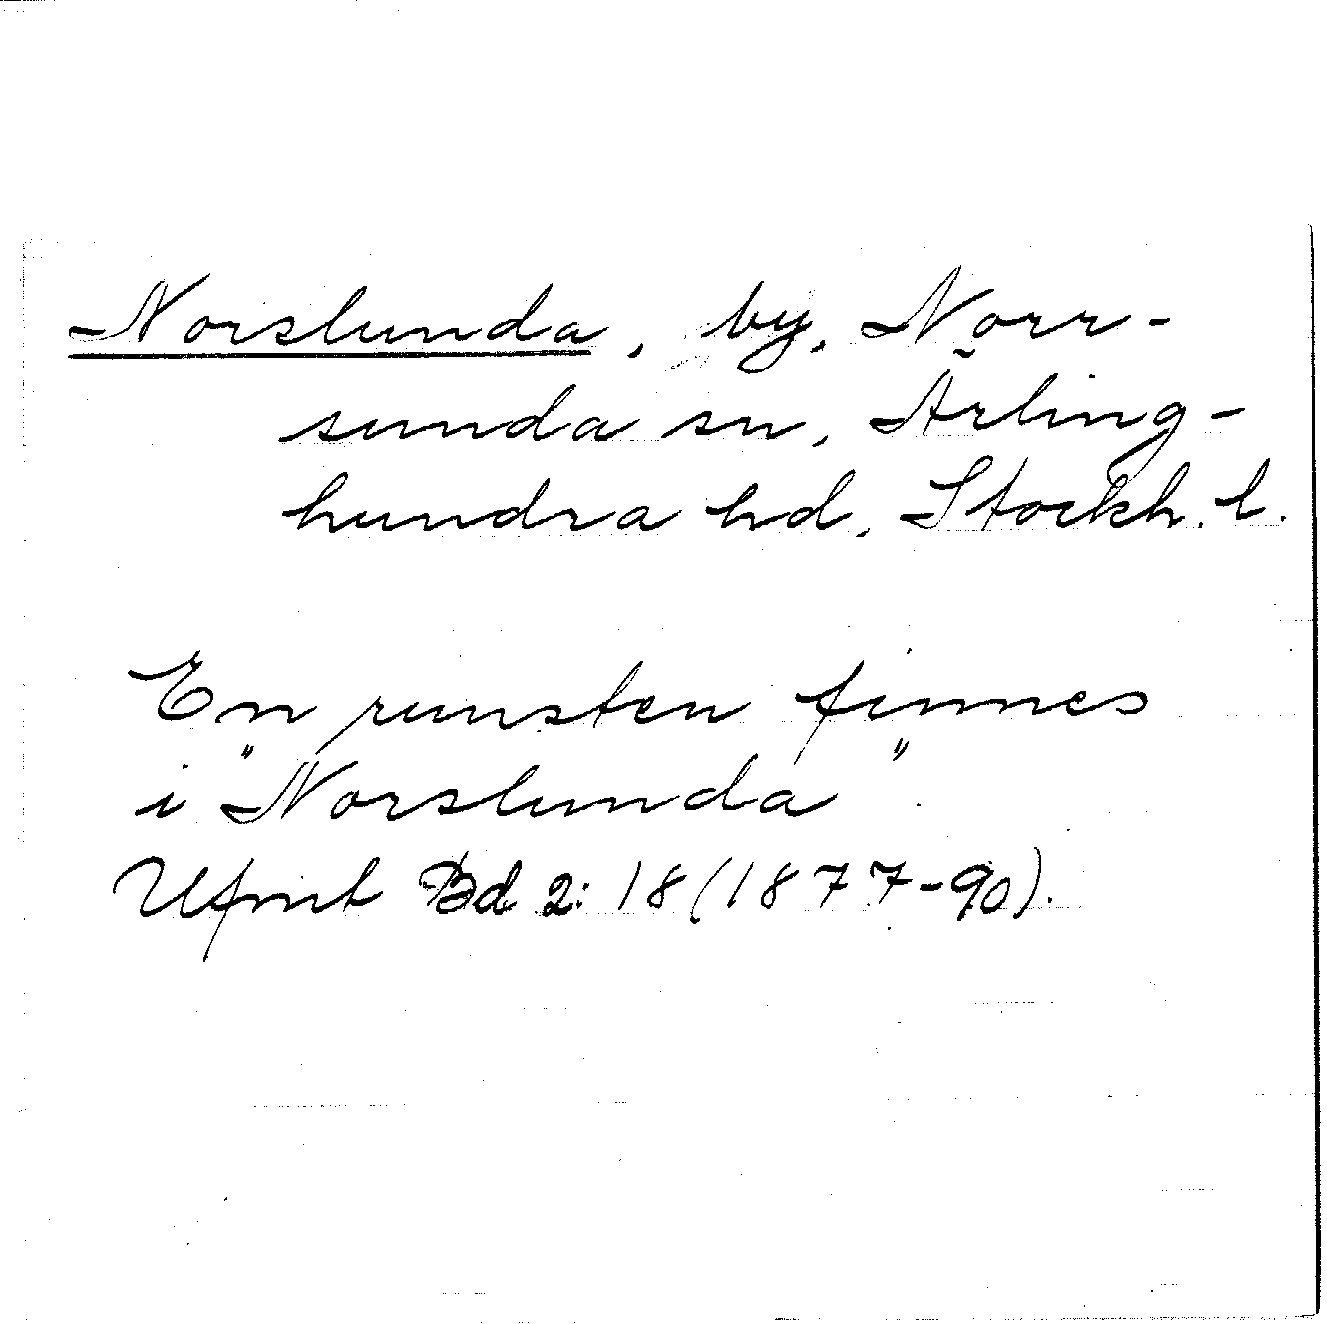 Norslunda, by, Norr-
sunda sn, Ärling-
hundra hd, Stockh. l.
En runsten finnes
i "Norslunda".
Ufmt Bd 2: 18 (1877-90).